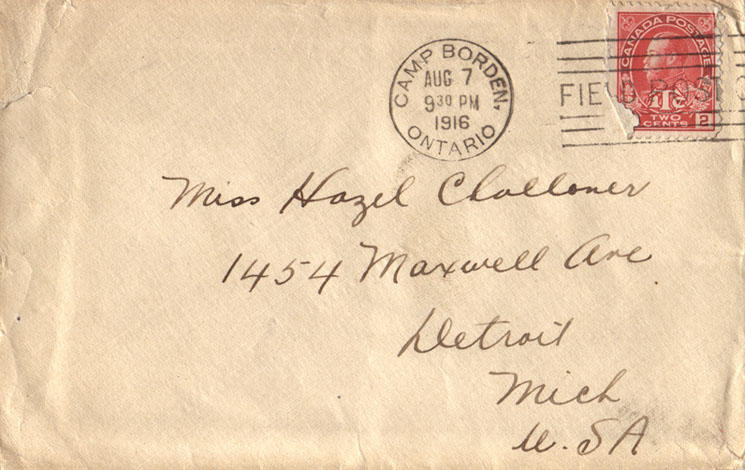 CAMP BORDEN,
AUG 7
9 30 PM
1916
ONTARIO
CANADA POSTAGE
FIELD POST O
1Tc
2
TWO
CENTS
Miss Hazel Challoner
1454 Maxwell Ave
Detroit
Mich
U.SA